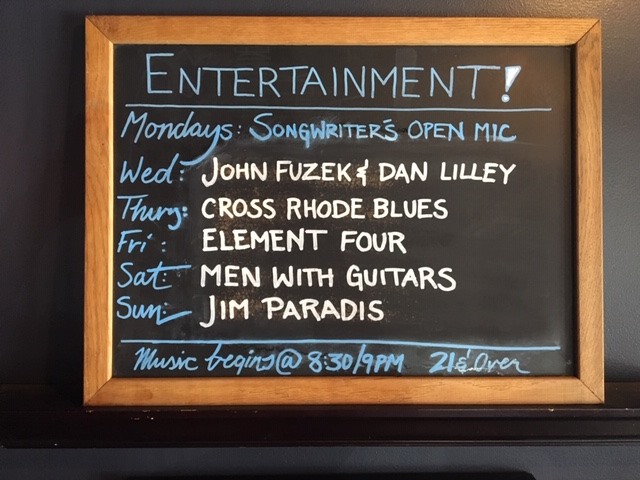 ENTERTAINMENT!
Mondays: SONGWRITER'S OPEN MIC
Wed: JOHN FUZEK & DAN LILLEY
Thurs: CROSS RHODE BLUES
Fri: ELEMENT FOUR
Sat: MEN WITH GUITARS
Sun: JIM PARADIS
Music begins @ 8:30/9PM 21 & Over